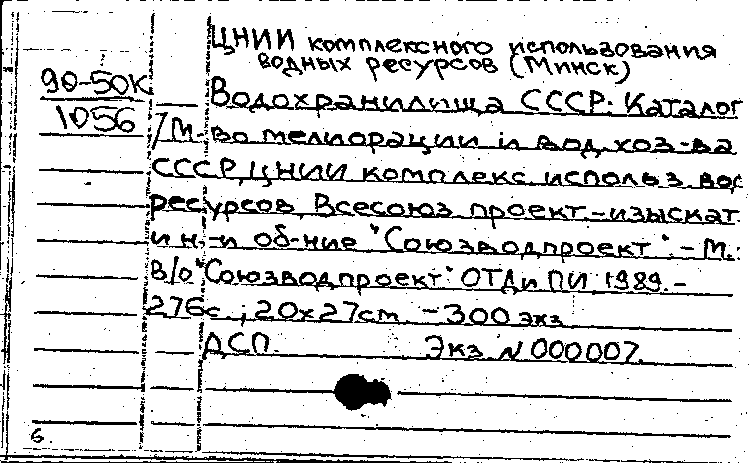 ЦНИИ комплексного использования
водных ресурсов (Минск)
90-50К
Водохранилища СССР: Каталог
1056
/М-во мелиорации и вод. хоз-ва
СССР, ЦНИИ комплекс. использ. вод.
ресурсов, Всесоюз. проект.-изыскат.
и н.-и об-ние "Союзводпроект". - М.:
В/о "Союзводпроект". ОТД и ПИ, 1989. -
276с.; 20х27cm - 300 экз
ДСП. Экз N 000007.
6.